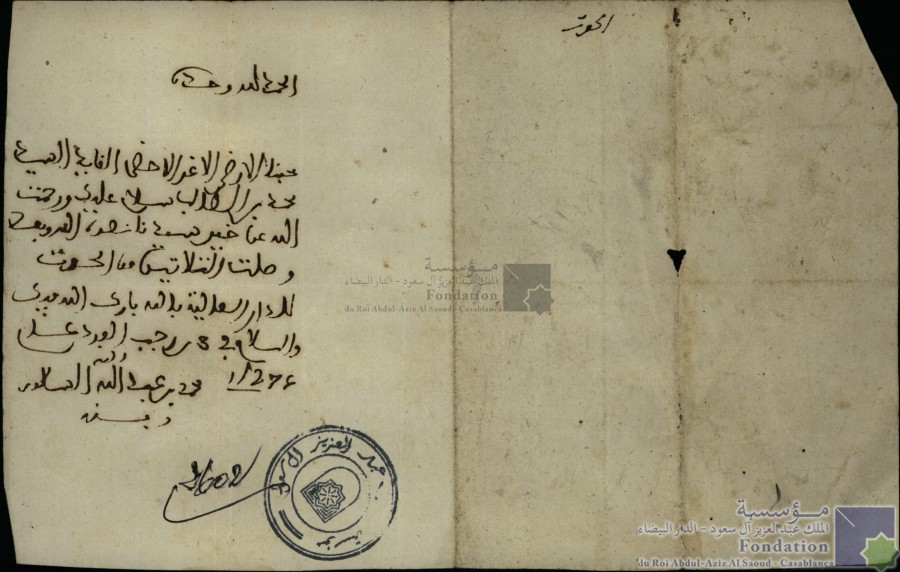 الحوت
الحمد لله وحده
محبنا الارضى الاعز الاحضى القايد السيد
محمد بن الطالب سلام عليك ورحمت
الله عن خير سيدنا نصره الله وبعد
وصلت الثلاثين من الحوت
للدار العالية بالله بارك الله فيك
والسلام في 3 رجب الفرد عام
1276
محمد بن عبد الله
وفقه الله
1602
عبد العزيز آل سعود
مؤسسة
الملك عبد العزيز آل سعود - الدار البيضاء
Fondation
du Roi Abdul-Aziz Al Saoud - Casablanca
مؤسسة
الملك عبد العزيز آل سعود - الدار البيضاء
Fondation
du Roi Abdul-Aziz Al Saoud - Casablanca